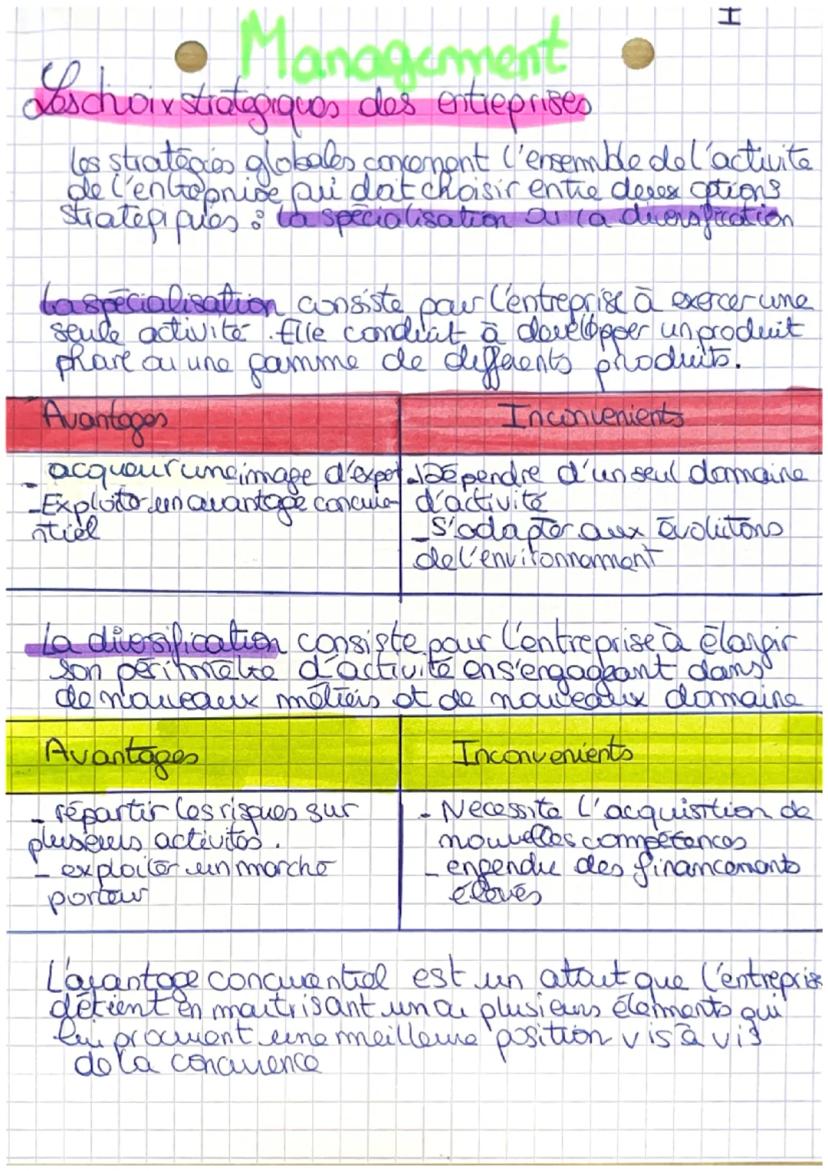 I
Management
Les choix stratégiques des entreprises
Les stratégies globales concernent l'ensemble de l'activité
de l'entreprise qui doit choisir entre deux options
stratégiques : la spécialisation ou la diversification
La spécialisation consiste pour l'entreprise à exercer une
seule activité. Elle conduit à développer un produit
phare ou une gamme de différents produits.
Avantages
Inconvenients
- acquérir une image d'expert
- Exploiter un avantage concurre-
ntiel
- Dépendre d'un seul domaine
d'activité
- S'adapter aux évolutions
de l'environnement
La diversification consiste pour l'entreprise à élargir
son périmètre d'activité en s'engageant dans
de nouveaux métiers et de nouveaux domaine
Avantages
Inconvenients
- répartir les risques sur
plusieurs activités.
- exploiter un marché
porteur
- Nécessite l'acquisition de
nouvelles compétences
- engendre des financements
élevés
L'avantage concurrentiel est un atout que l'entreprise
détient en maitrisant un ou plusieurs éléments qui
lui procurent une meilleure position vis à vis
de la concurrence